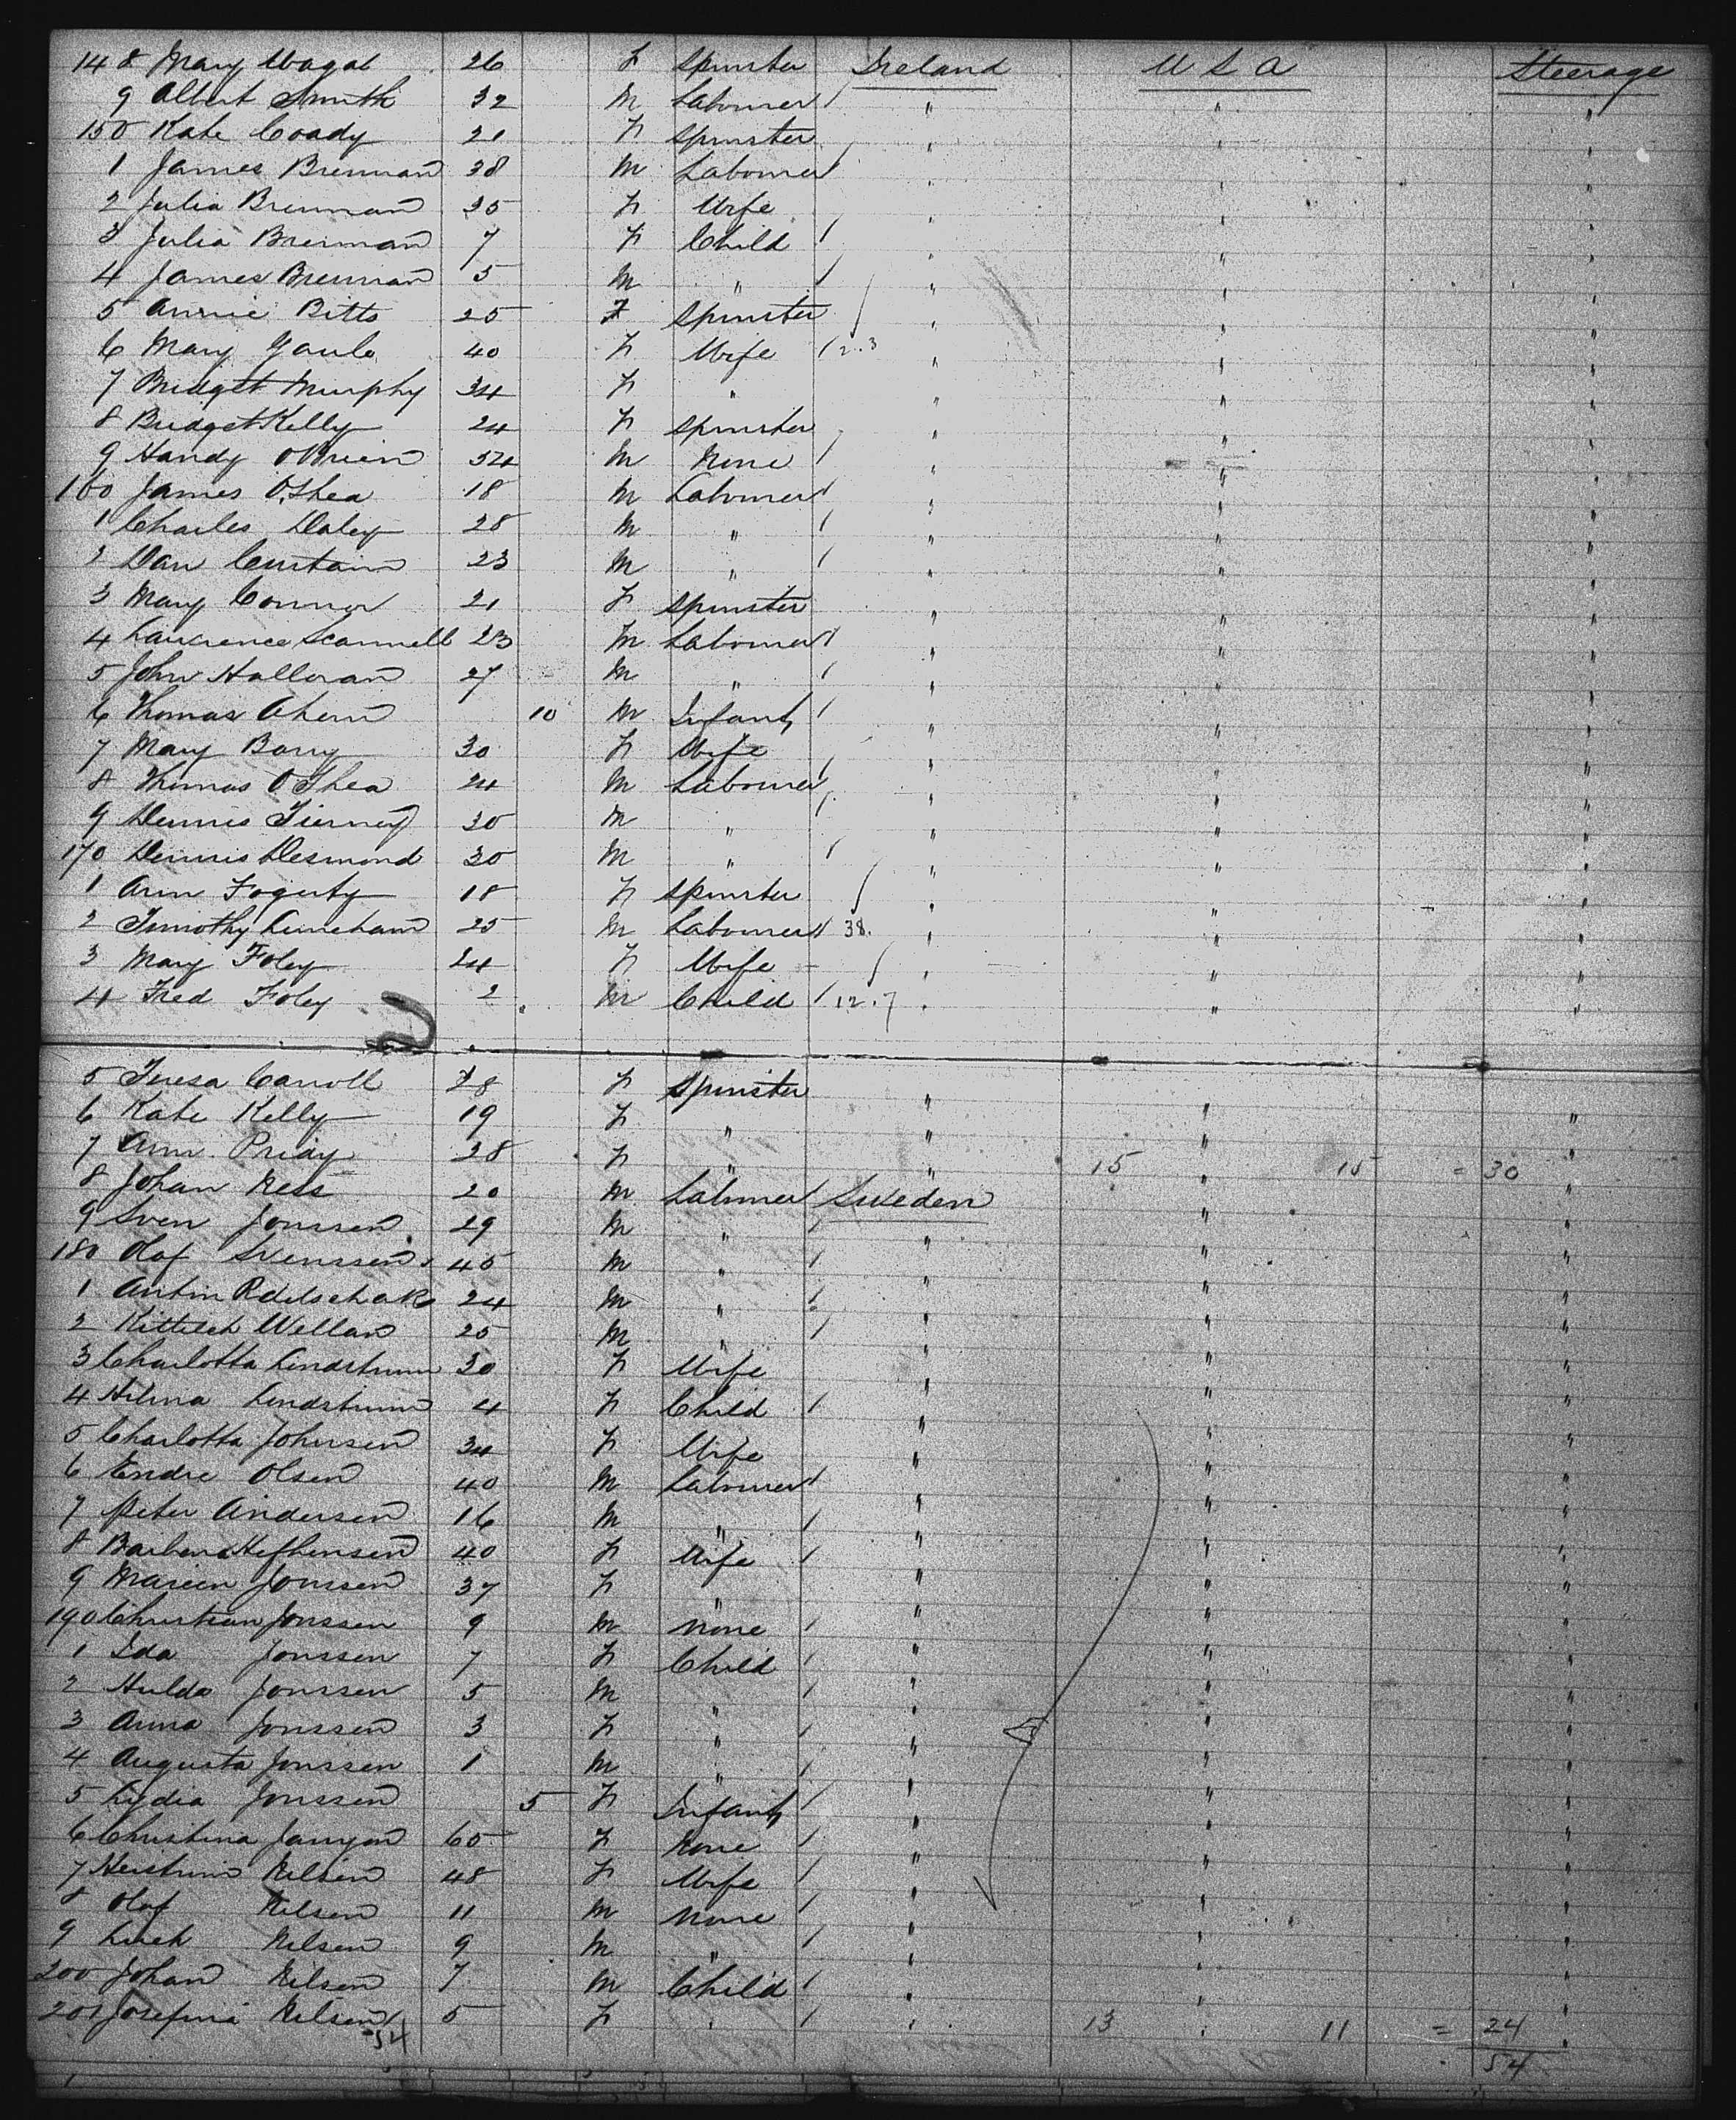 148 Mary 26 F Spinster Ireland U S A Steerage
9 Albert Smith 32 M Labourer " " "
150 Kate Coady 21 F Spinster " " "
1 James Brennan 38 M Labourer " " "
2 Julia Brennan 35 F Wife " " "
3 Julia Brennan 7 F Child " " "
4 James Brennan 5 M " " " "
5 Annie Bitts 25 F Spinster " " "
6 Mary 40 F Wife 2.3 " " "
7 Bridget Murphy 34 F " " " "
8 Bridget Kelly 24 F Spinster " " "
9 Handy OBrien 54 M None " " "
160 James O'Shea 18 M Labourer " " "
1 Charles Daley 28 M " " " "
2 Dan Curtain 23 M " " " "
3 Mary Connor 21 F Spinster " " "
4 Lawrence Scannell 23 M Labourer " " "
5 John Halloran 27 M " " " "
6 Thomas Ahern 10 M Infant " " "
7 Mary Barry 30 F Wife " " "
8 Thomas O'Shea 24 M Labourer " " "
9 Dennis Tierney 30 M " " " "
170 Dennis Desmond 30 M " " " "
1 Ann Fogerty 18 F Spinster " " "
2 Timothy 25 M Labourer 38. " " "
3 Mary Foley 24 F Wife " " "
4 Fred Foley 2 M Child 12.7 " " "
5 Teresa Carroll 28 F Spinster " " "
6 Kate Kelly 19 F " " " "
7 Ann Pridy 28 F " " 15 " 15 = 30 "
8 Johan 20 M Labourer Sweden " "
9 Sven Jonssen 29 M " " " "
180 Olof Svenssen 45 M " " " "
1 24 M " " " "
2 25 M " " " "
3 Charlotta 30 F Wife " " "
4 Hilma 4 F Child " " "
5 Charlotta Johnsen 34 F Wife " " "
6 Endre Olsen 40 M Labourer " " "
7 Peter Andersen 16 M " " " "
8 Barbara 40 F Wife " " "
9 Jonssen 37 F " " " "
190 Christian Jonssen 9 M None " " "
1 Ida Jonssen 7 F Child " " "
2 Hulda Jonssen 5 M " " " "
3 Anna Jonssen 3 F " " " "
4 Augusta Jonssen 1 M " " " "
5 Lydia Jonssen 5 F Infant " " "
6 Christina 65 F None " " "
7 Nilsen 48 F Wife " " "
8 Olof Nilsen 11 M None " " "
9 Nilsen 9 M " " " "
200 Johan Nilsen 7 M Child " " "
201 Josefina Nilsen 5 F " " 13 " 11 = 24 "
54 54